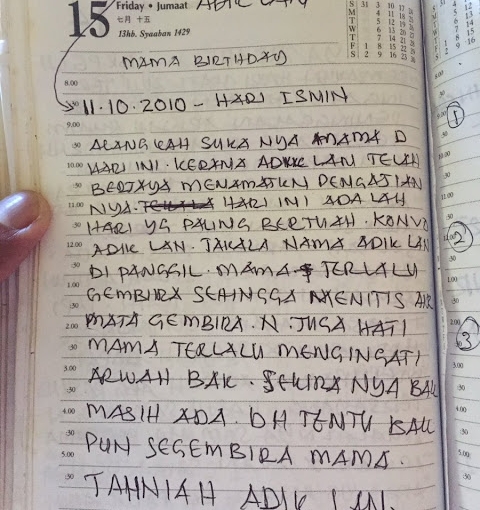 15 Friday • Jumaat ADIK LAN
七月 十五
13hb. Syaaban 1429
S 31 3 10 17
M
T
W
T
F 1 8 15 22
S 2 9 16 23
MAMA BIRTHDAY
8.00
11.10.2010 - HARI ISNIN
9.00
:30 ALANGKAH SUKA NYA MAMA D
10.00 HARI INI. KERANA ADIK LAN TELAH
:30 BERJAYA MENAMATKN PENGAJIAN
11.00 NYA. HARI INI ADALAH
:30 HARI YG PALING BERTUAH. KONVO
12.00 ADIK LAN. TAKALA NAMA ADIK LAN
:30 DI PANGGIL. MAMA TERLALU
1.00 GEMBIRA SEHINGGA MENITIS AIR
:30
2.00 MATA GEMBIRA. N. JUGA HATI
:30 MAMA TERLALU MENGINGATI
3.00 ARWAH BAK. SEKIRA NYA BAK
:30
4.00 MASIH ADA. DH TENTU BAK
:30 PUN SEGEMBIRA MAMA.
5.00
:30 TAHNIAH ADIK LAN.
1
2
3